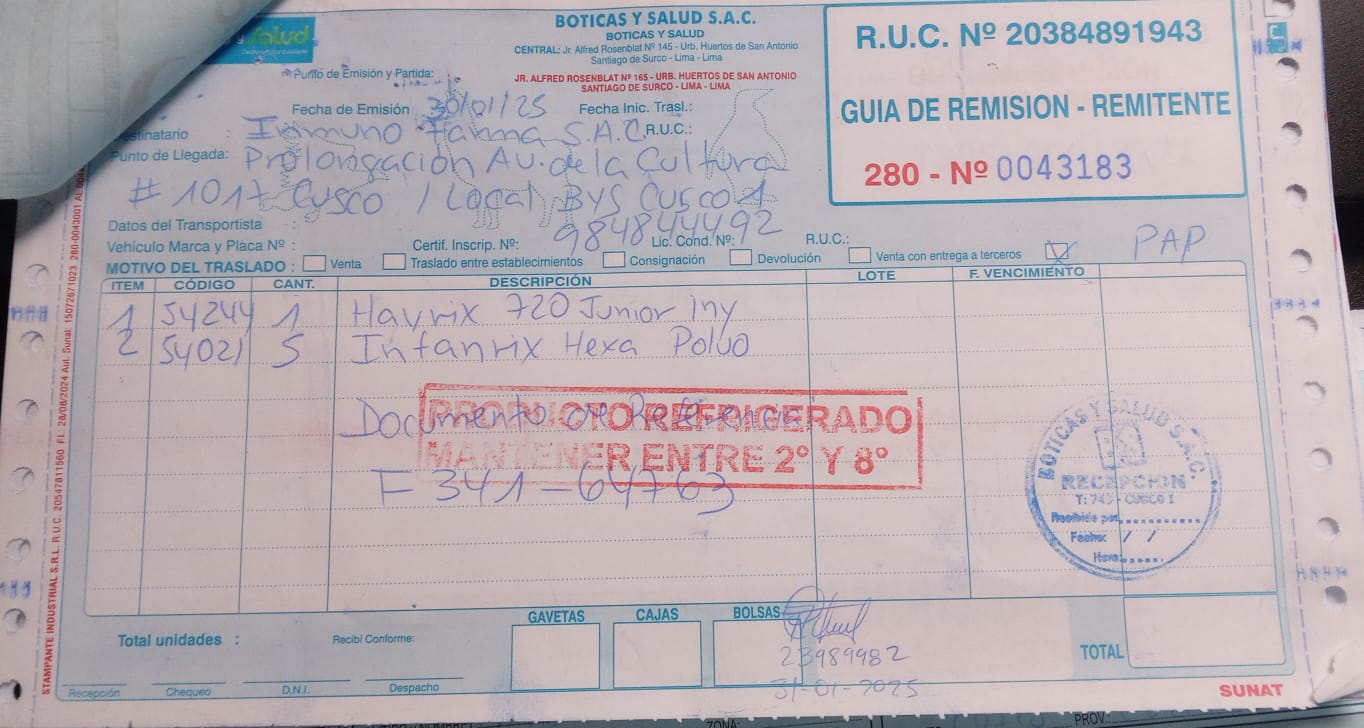 Salud
BOTICAS Y SALUD S.A.C.
BOTICAS Y SALUD
CENTRAL: Jr. Alfred Rosenblat Nº 145 - Urb. Huertos de San Antonio
Santiago de Surco - Lima - Lima
R.U.C. Nº 20384891943
GUIA DE REMISION - REMITENTE
280 - Nº 0043183
Punto de Emisión y Partida:
JR. ALFRED ROSENBLAT Nº 165 - URB. HUERTOS DE SAN ANTONIO
SANTIAGO DE SURCO - LIMA - LIMA
Fecha de Emisión 30/01/25 Fecha Inic. Trasl.:
stinatario : Inmuno Farma S.A.C. R.U.C.:
Punto de Llegada: Prolongación Av. de la Cultura
# 1017 Cusco / Local BYS Cusco 1
Datos del Transportista 984844492
Vehículo Marca y Placa Nº : Certif. Inscrip. Nº: Lic. Cond. Nº: R.U.C.:
MOTIVO DEL TRASLADO : Venta Traslado entre establecimientos Consignación Devolución Venta con entrega a terceros X PAP
ITEM CÓDIGO CANT. DESCRIPCIÓN LOTE F. VENCIMIENTO
1 54244 1 Havrix 720 Junior Iny
2 54021 5 Infanrix Hexa Polvo
Documento de Referencia
PRODUCTO REFRIGERADO
MANTENER ENTRE 2° Y 8°
F341-64763
BOTICAS Y SALUD S.A.C.
BS
RECEPCION
T: 745 - CUSCO I
Recibido por:
Fecha: / /
Hora:
GAVETAS CAJAS BOLSAS
Total unidades : Recibí Conforme:
23989982
TOTAL
31-01-2025
Recepción Chequeo D.N.I. Despacho
SUNAT
STAMPANTE INDUSTRIAL S.R.L. R.U.C. 20547811560 F.I. 28/08/2024 Aut. Sunat: 15072671023 280-0043001 AL
ZONA:
PROV.: